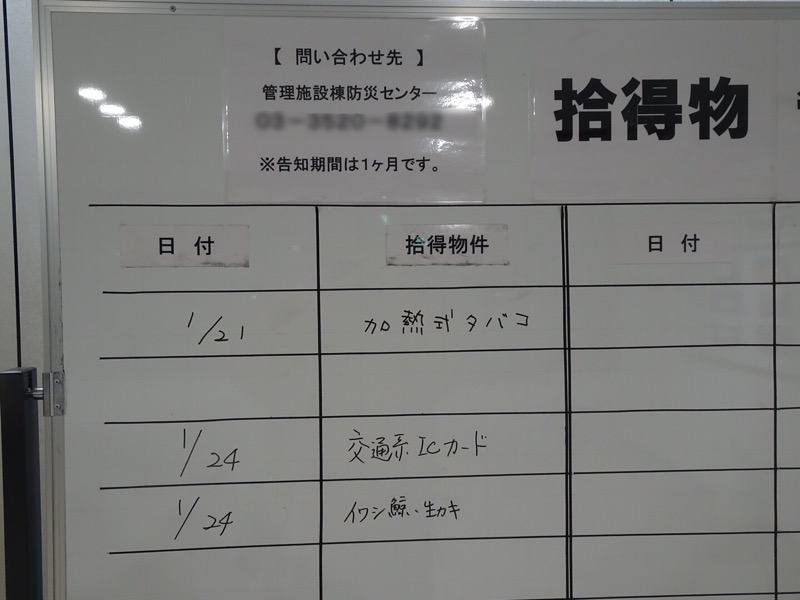 【 問い合わせ先 】
管理施設棟防災センター
※告知期間は1ヶ月です。
拾得物
日 付 拾得物件 日 付
1/21 加熱式タバコ
1/24 交通系ICカード
1/24 イワシ鯨・生カキ